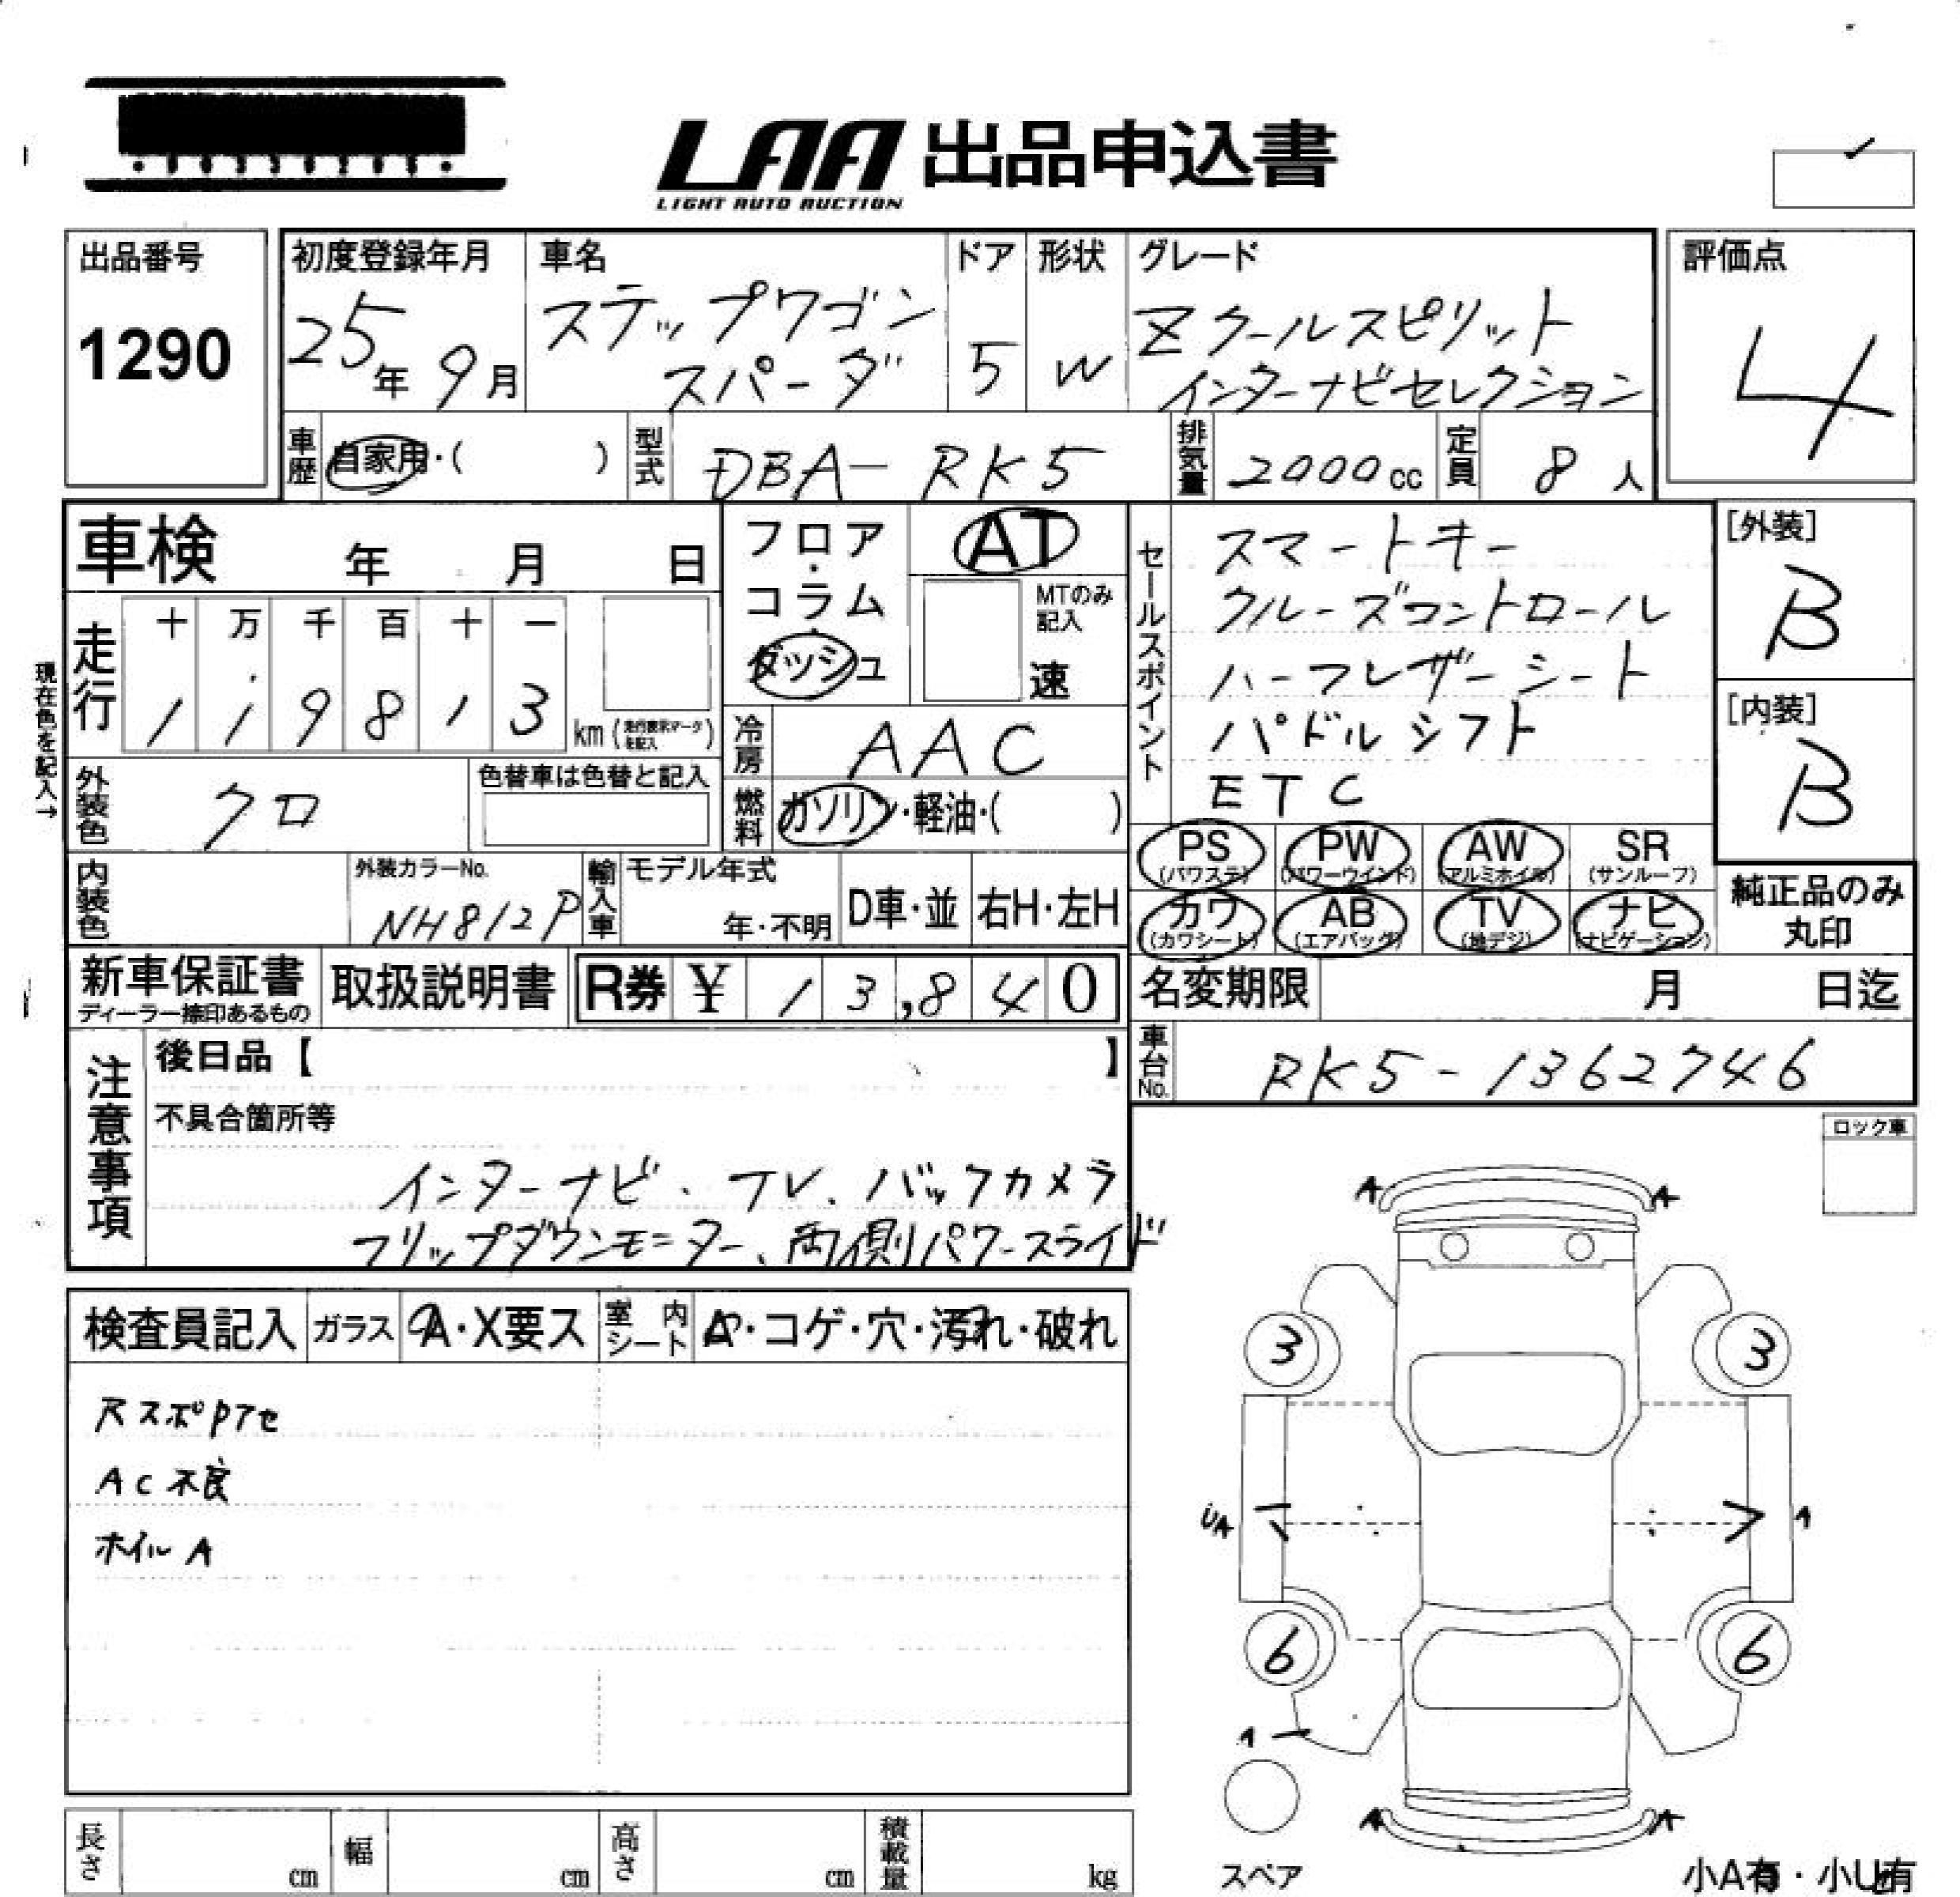 LAA 出品申込書
LIGHT AUTO AUCTION
出品番号
1290
初度登録年月
25年 9月
車名
ステップワゴン
スパーダ
ドア
5
形状
W
グレード
Zクールスピリット
インターナビセレクション
評価点
4
車歴 自家用・( )
型式 DBA-RK5
排気量 2000cc
定員 8人
車検 年 月 日
フロア・コラム・ダッシュ
AT
MTのみ記入
速
セールスポイント
スマートキー
クルーズコントロール
ハーフレザーシート
パドルシフト
ETC
[外装]
B
[内装]
B
現在色を記入→
走行
十 万 千 百 十 一
1 1 9 8 1 3 km (走行表示マークを記入)
冷房 AAC
外装色 クロ
色替車は色替と記入
燃料 ガソリン・軽油・( )
PS (パワステ) PW (パワーウインド) AW (アルミホイル) SR (サンルーフ)
カワ (カワシート) AB (エアバッグ) TV (地デジ) ナビ (ナビゲーション)
純正品のみ
丸印
内装色
外装カラーNo.
NH812P
輸入車
モデル年式
年・不明
D車・並
右H・左H
新車保証書
ディーラー捺印あるもの
取扱説明書
R券 ¥ 13,840
名変期限 月 日迄
車台No. RK5-1362746
注意事項
後日品【 】
不具合箇所等
インターナビ、TV、バックカメラ
フリップダウンモニター、両側パワースライド
ロック車
検査員記入 ガラス A・X要ス 室内シート A・コゲ・穴・汚れ・破れ
RスポPアセ
AC不良
ホイルA
A A
3 3
UA A
6 6
A
A A
スペア
小A有・小U有
長さ cm
幅 cm
高さ cm
積載量 kg